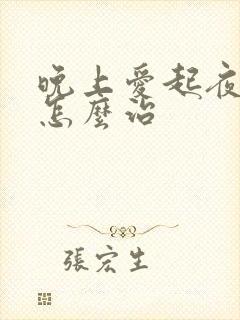 晚上愛起夜
怎麼治
張宏生